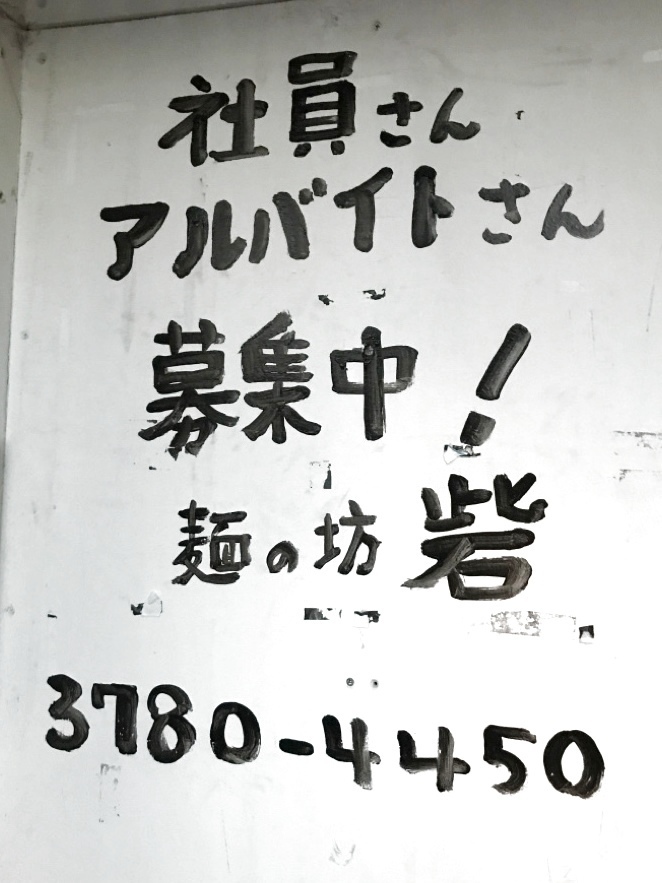 社員さん
アルバイトさん
募集中!
麺の坊 砦
3780-4450